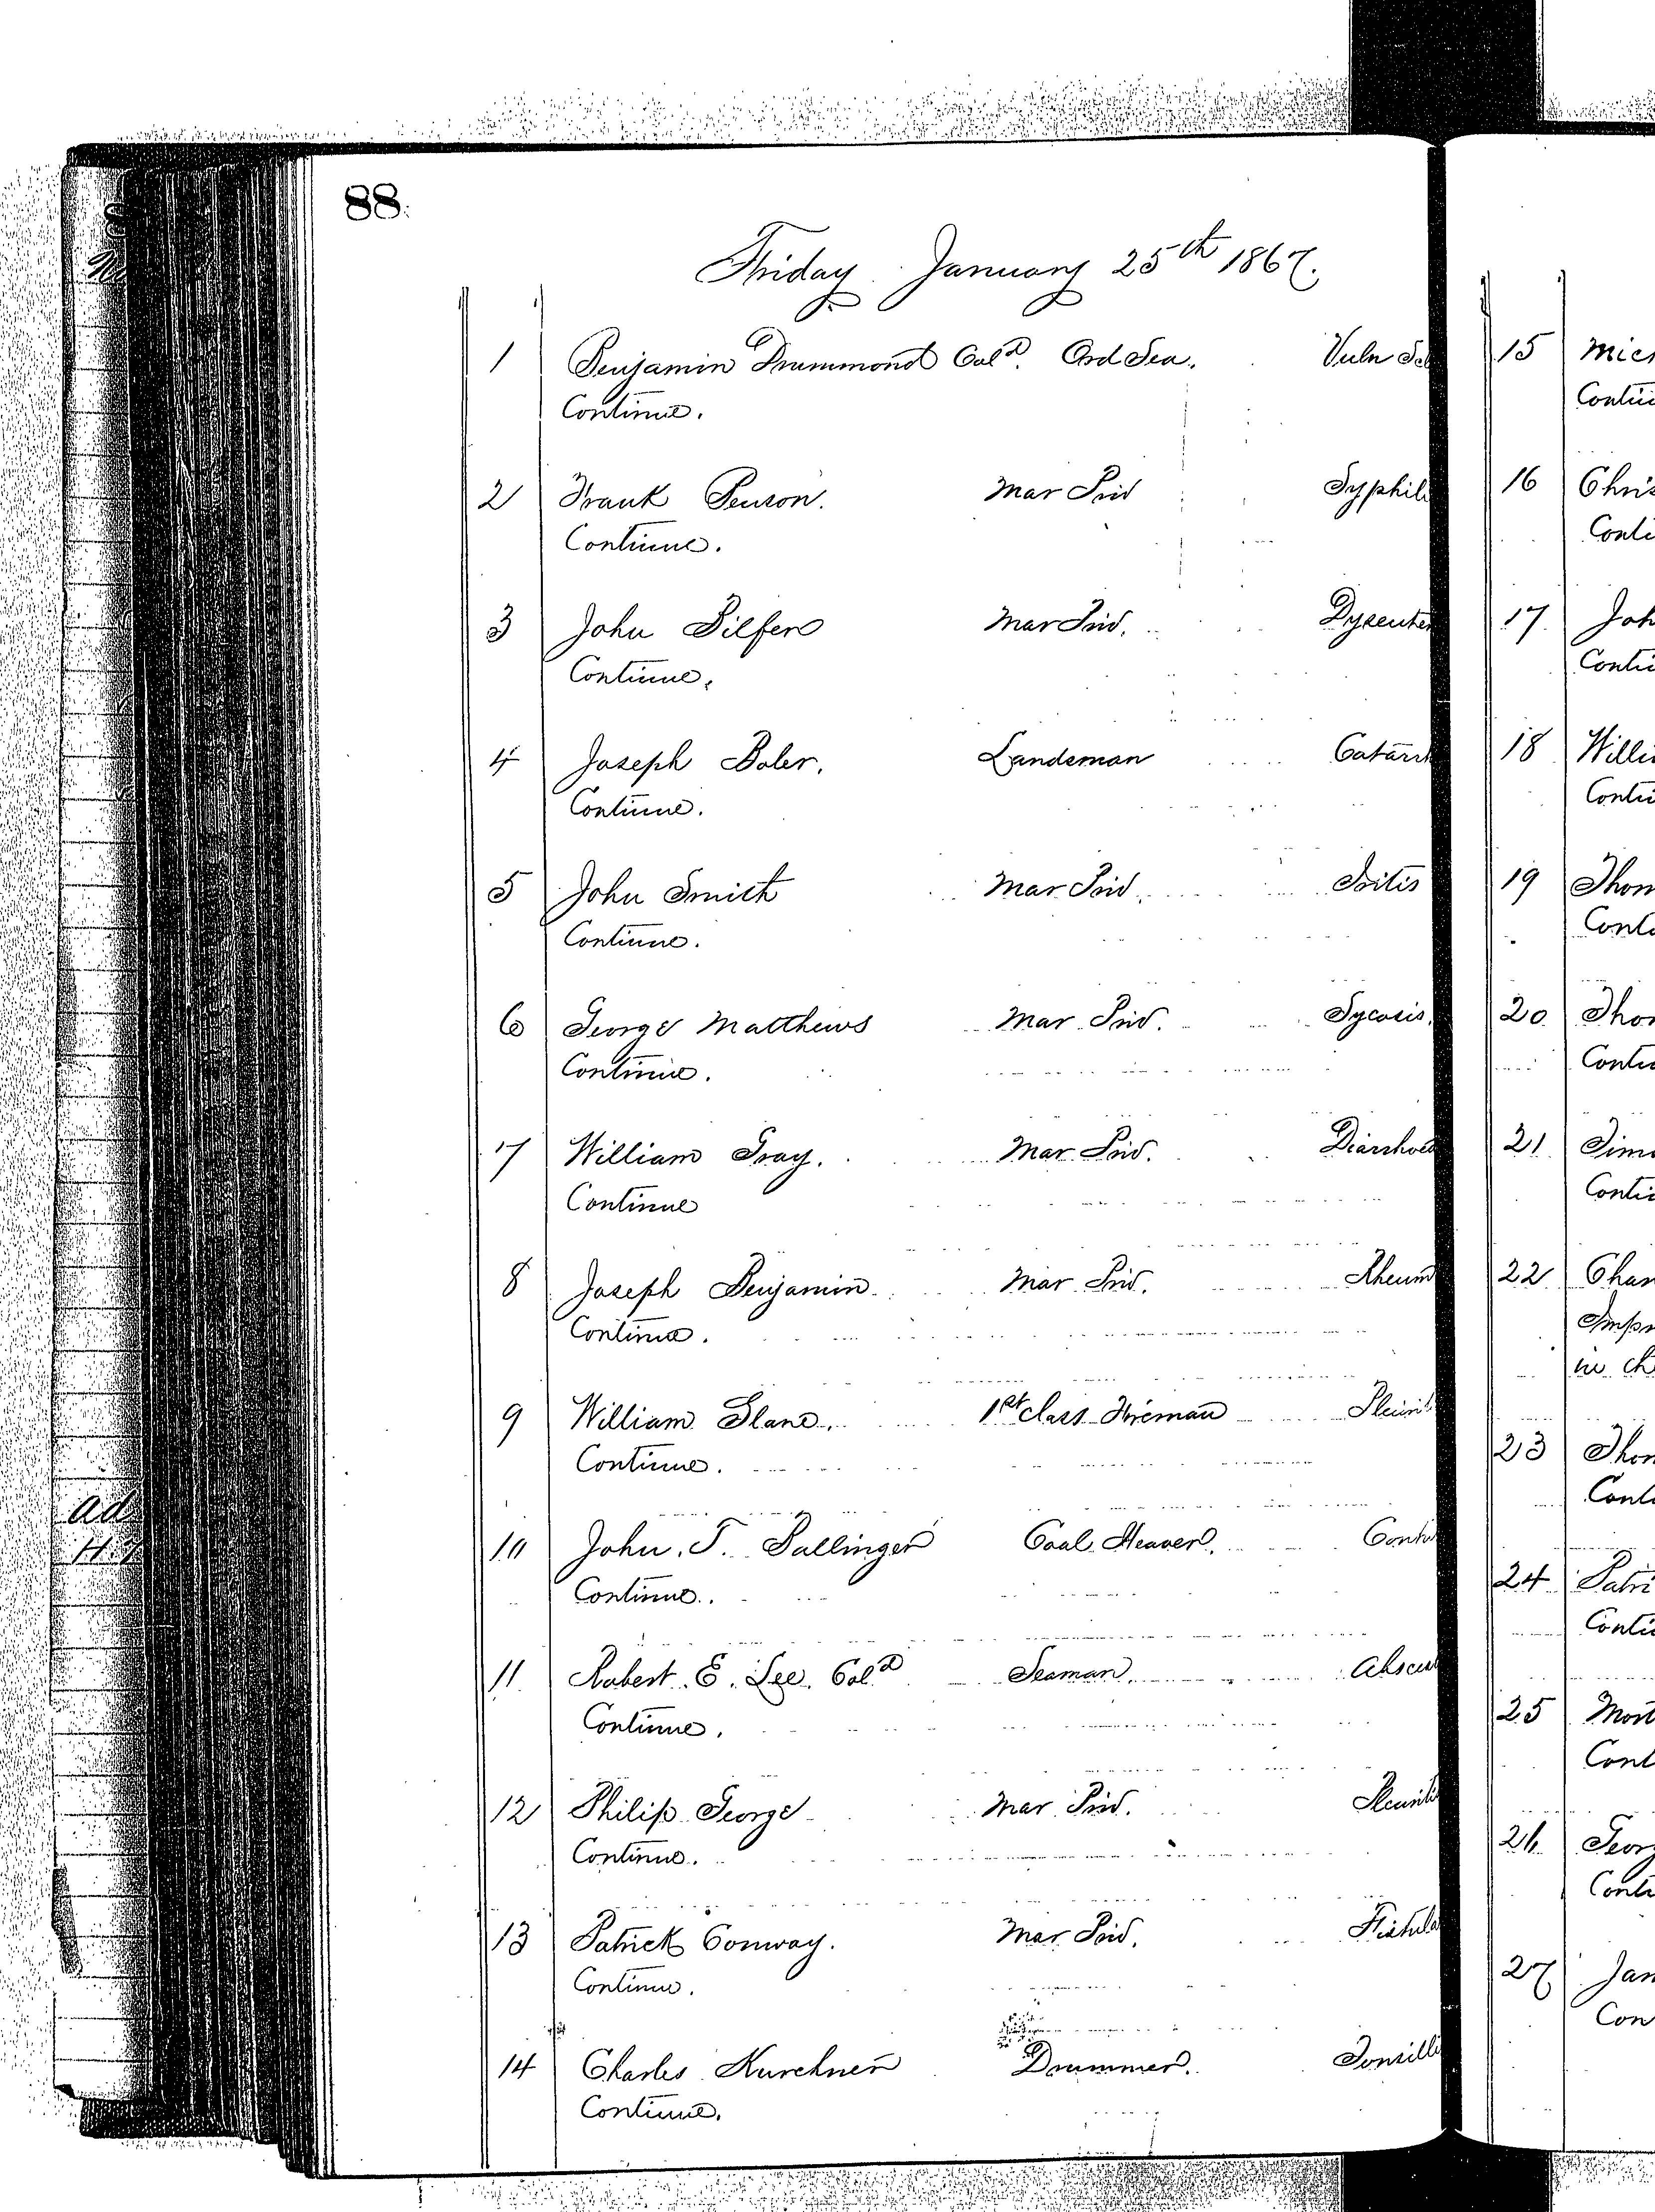 88.
Friday January 25th 1867.
1 Benjamin Drummond Cold. Ord Sea. Vuln Scl
Continue.
2 Frank Penson. Mar Priv Syphili
Continue.
3 John Pilfer Mar Priv. Dysenter
Continue.
4 Joseph Boler. Landsman Catarrh
Continue.
5 John Smith Mar Priv. Iritis
Continue.
6 George Matthews Mar Priv. Sycosis.
Continue.
7 William Gray. Mar Priv. Diarrhoea
Continue
8 Joseph Benjamin Mar Priv. Rheum
Continue.
9 William Slane. 1st class Fireman Pleurit
Continue.
10 John. T. Ballinger Coal Heaver. Contu
Continue.
11 Robert. E. Lee. Cold Seaman. Abscess
Continue.
12 Philip George Mar Priv. Pleuriti
Continue.
13 Patrick Conway. Mar Priv. Fistula
Continue.
14 Charles Kurchner Drummer. Tonsilli
Continue.
15 Mic
Contin
16 Chris
Conti
17 Joh
Conti
18 Willi
Contin
19 Thom
Cont
20 Tho
Contin
21 Tim
Contin
22 Char
Impr
in ch
23 Thom
Cont
24 Patri
Conti
25 Mort
Cont
26 Georg
Conti
27 Jam
Con
Ad